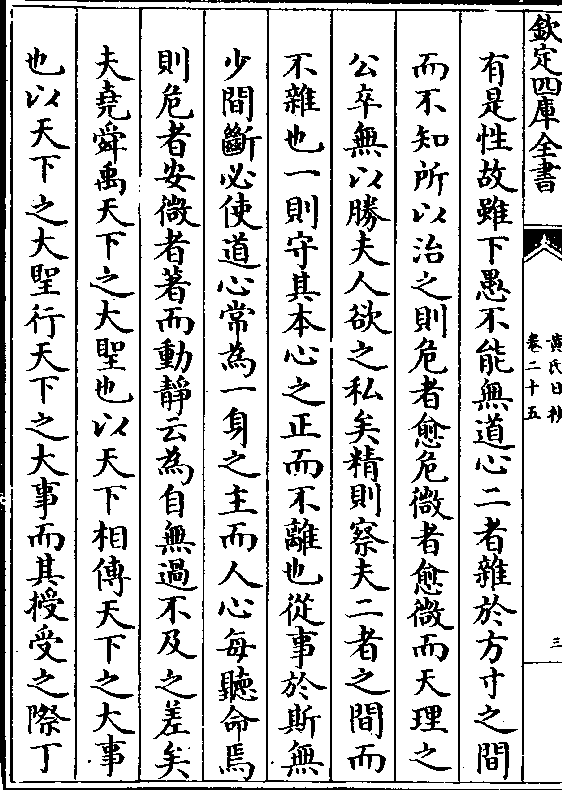 欽定四庫全書
黄氏日抄
卷二十五
三
有是性故雖下愚不能無道心二者雜於方寸之間
而不知所以治之則危者愈危微者愈微而天理之
公卒無以勝夫人欲之私矣精則察夫二者之間而
不雜也一則守其本心之正而不離也從事於斯無
少間斷必使道心常為一身之主而人心每聽命焉
則危者安微者著而動靜云為自無過不及之差矣
夫堯舜禹天下之大聖也以天下相傳天下之大事
也以天下之大聖行天下之大事而其授受之際丁